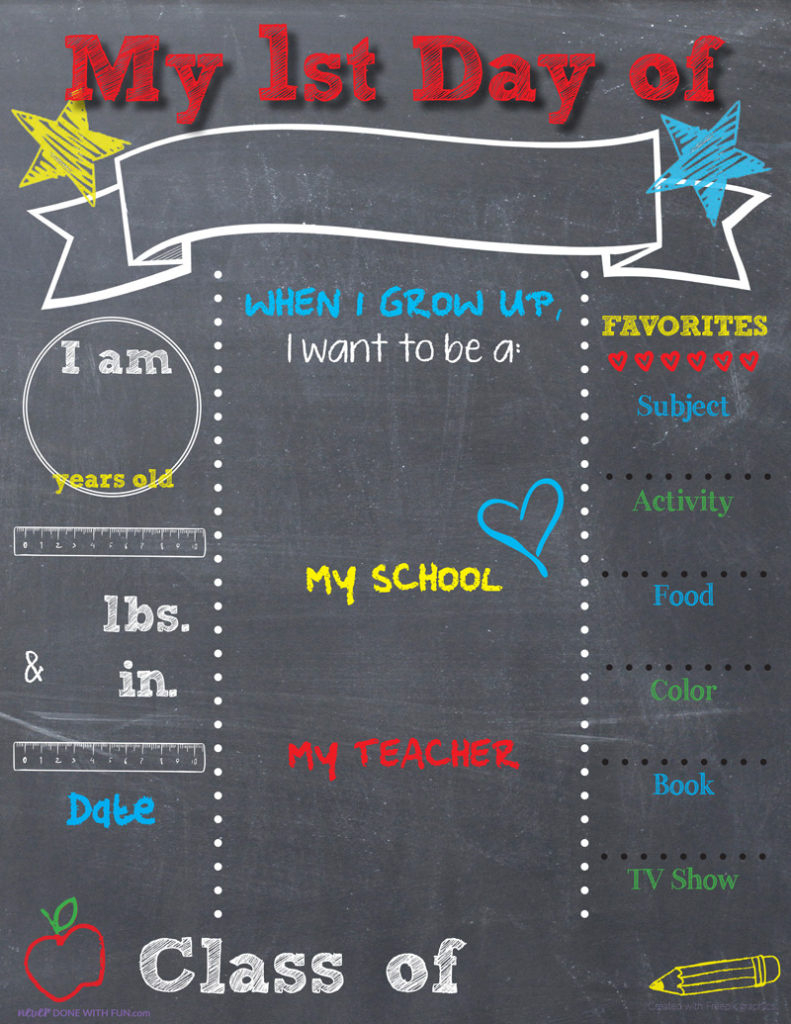 My 1st Day of
I am
years old
0 1 2 3 4 5 6 7 8 9 10
lbs.
& in.
0 1 2 3 4 5 6 7 8 9 10
Date
WHEN I GROW UP,
I want to be a:
MY SCHOOL
MY TEACHER
FAVORITES
Subject
Activity
Food
Color
Book
TV Show
Class of
never DONE WITH FUN.com
Created with Freepik graphics